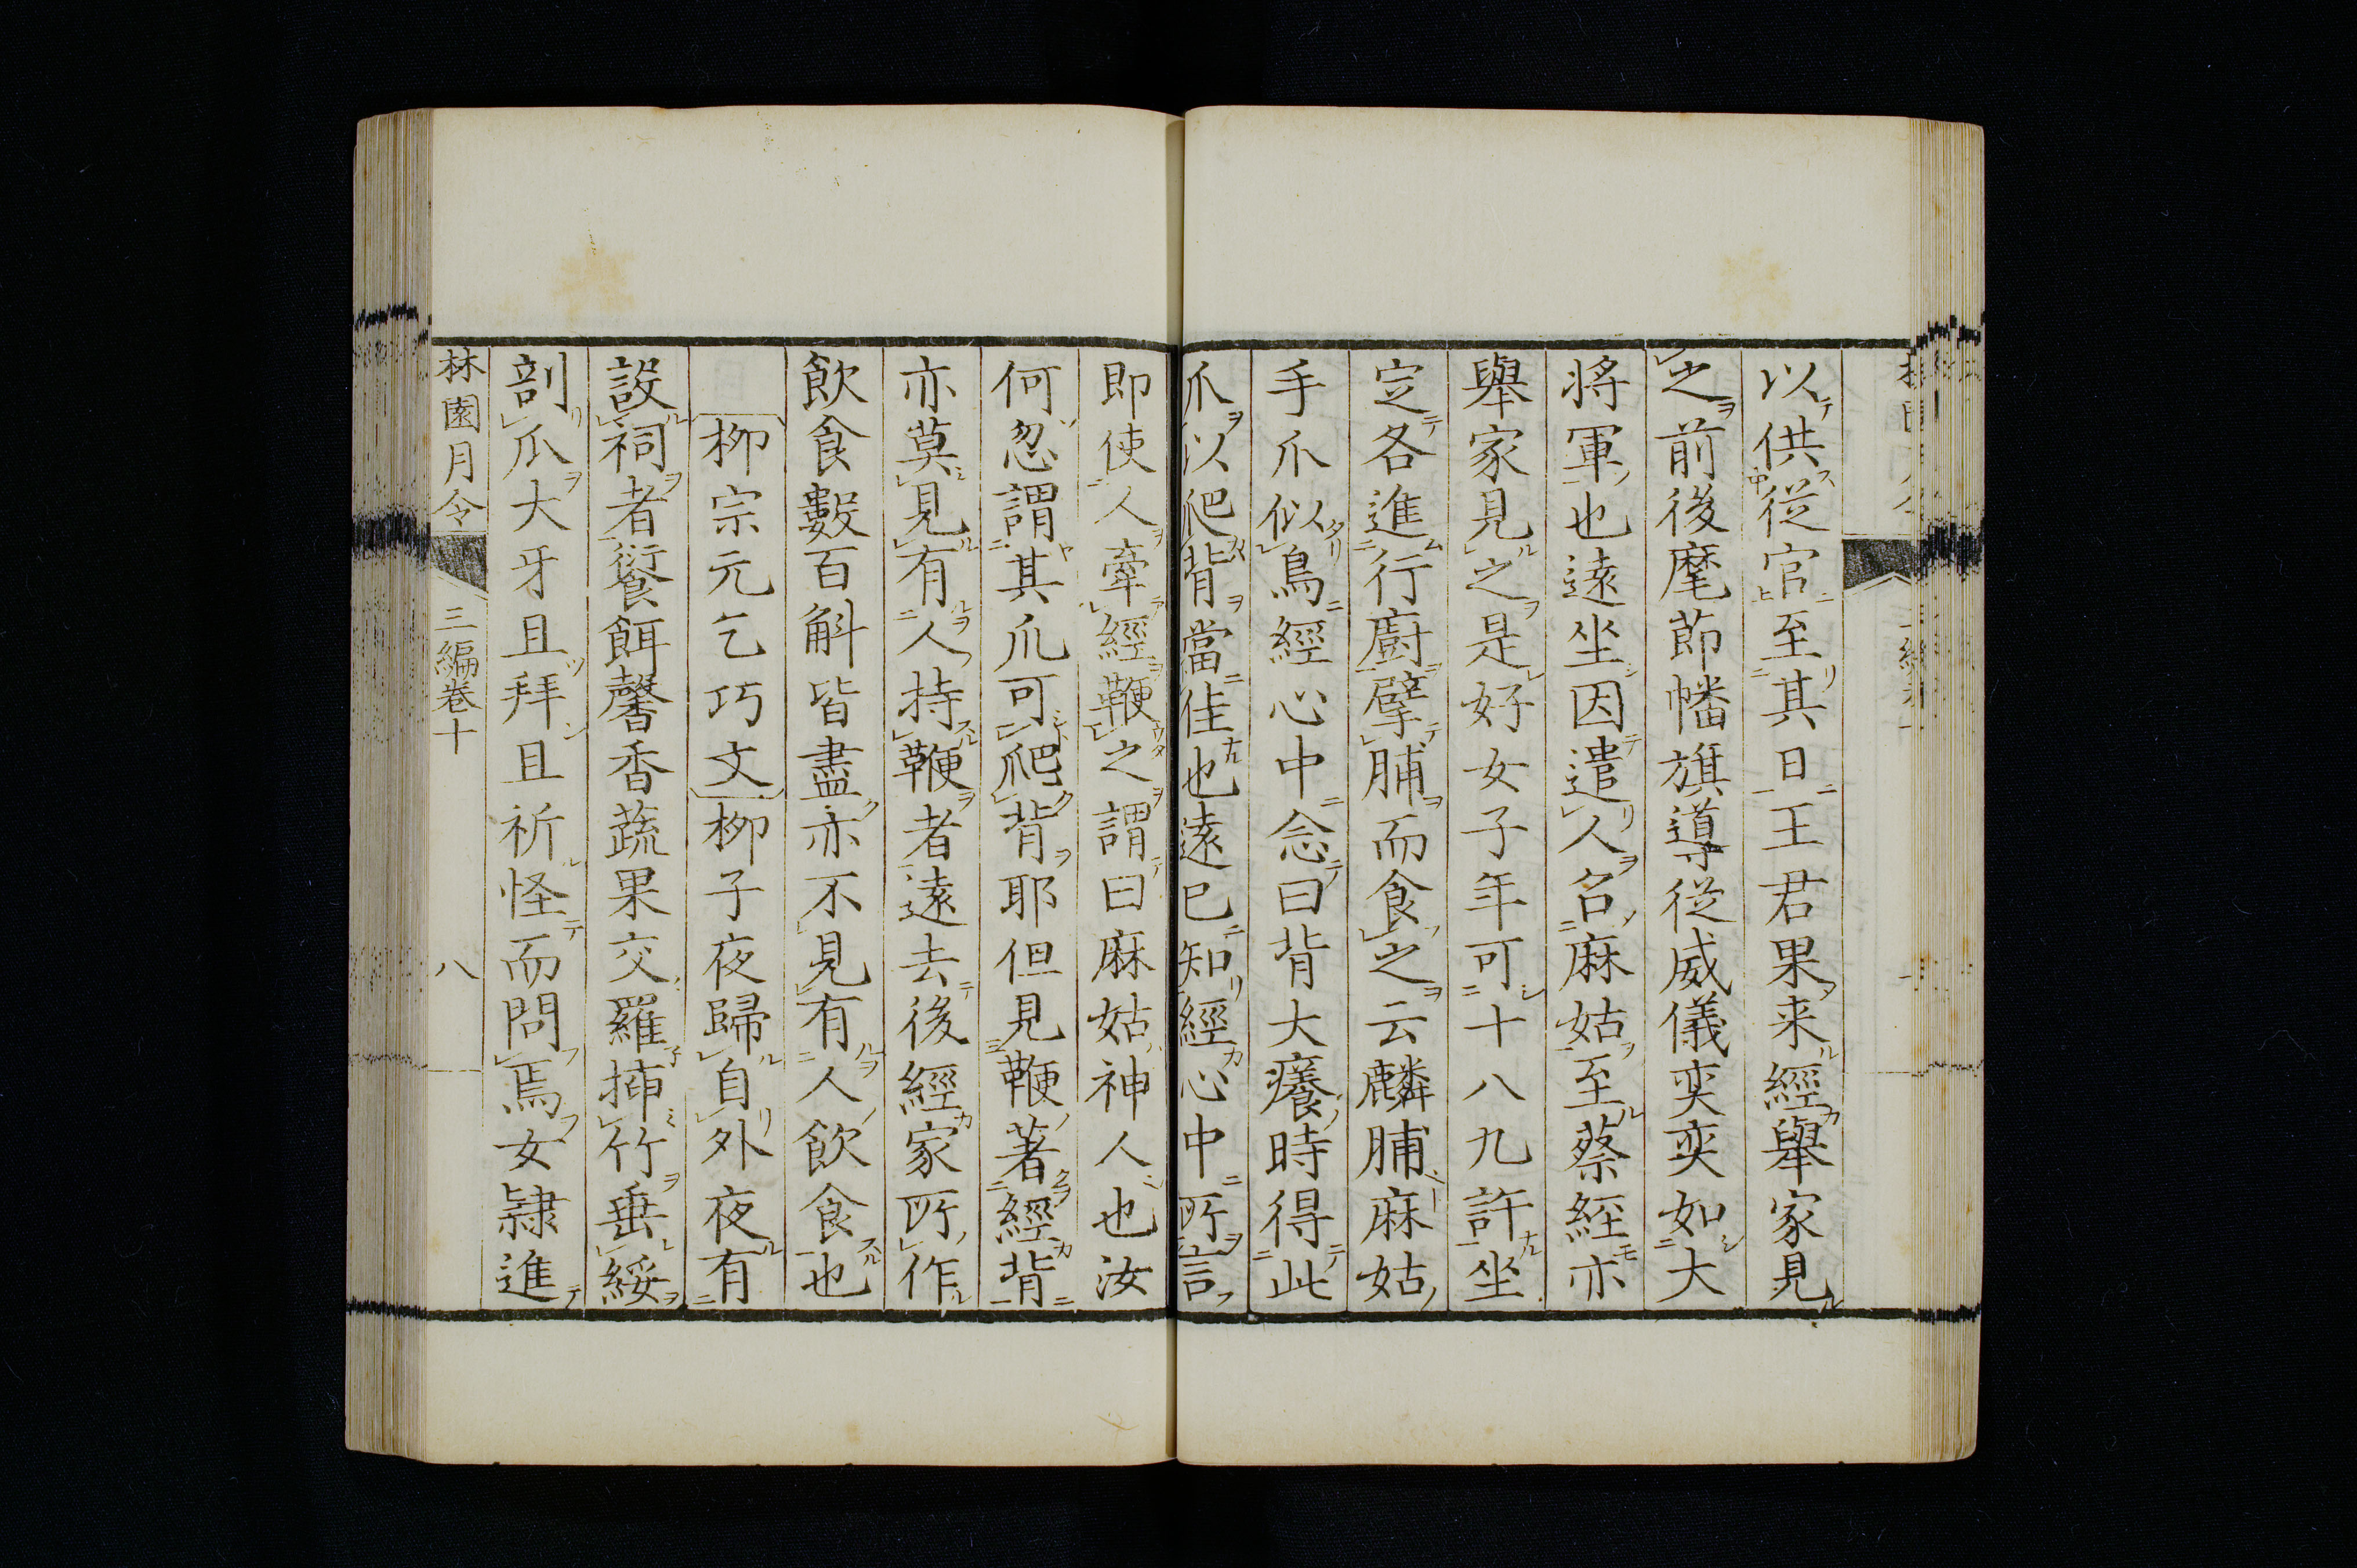 以供從官至其日王君果来經舉家見
之前後麾節幡旗導從威儀奕奕如大
将軍也遠坐因遣人名麻姑至蔡經亦
舉家見之是好女子年可十八九許坐
定各進行廚擘脯而食之云麟脯麻姑
手爪似鳥經心中念曰背大癢時得此
爪以爬背當佳也遠已知經心中所言
即使人牽經鞭之謂曰麻姑神人也汝
何忽謂其爪可爬背耶但見鞭著經背
亦莫見有人持鞭者遠去後經家所作
飲食數百斛皆盡亦不見有人飲食也
柳宗元乞巧文 柳子夜歸自外夜有
設祠者餐餌馨香蔬果交羅揷竹垂綏
剖瓜大牙且拜且祈怪而問焉女隷進
林園月令 三編卷十 八